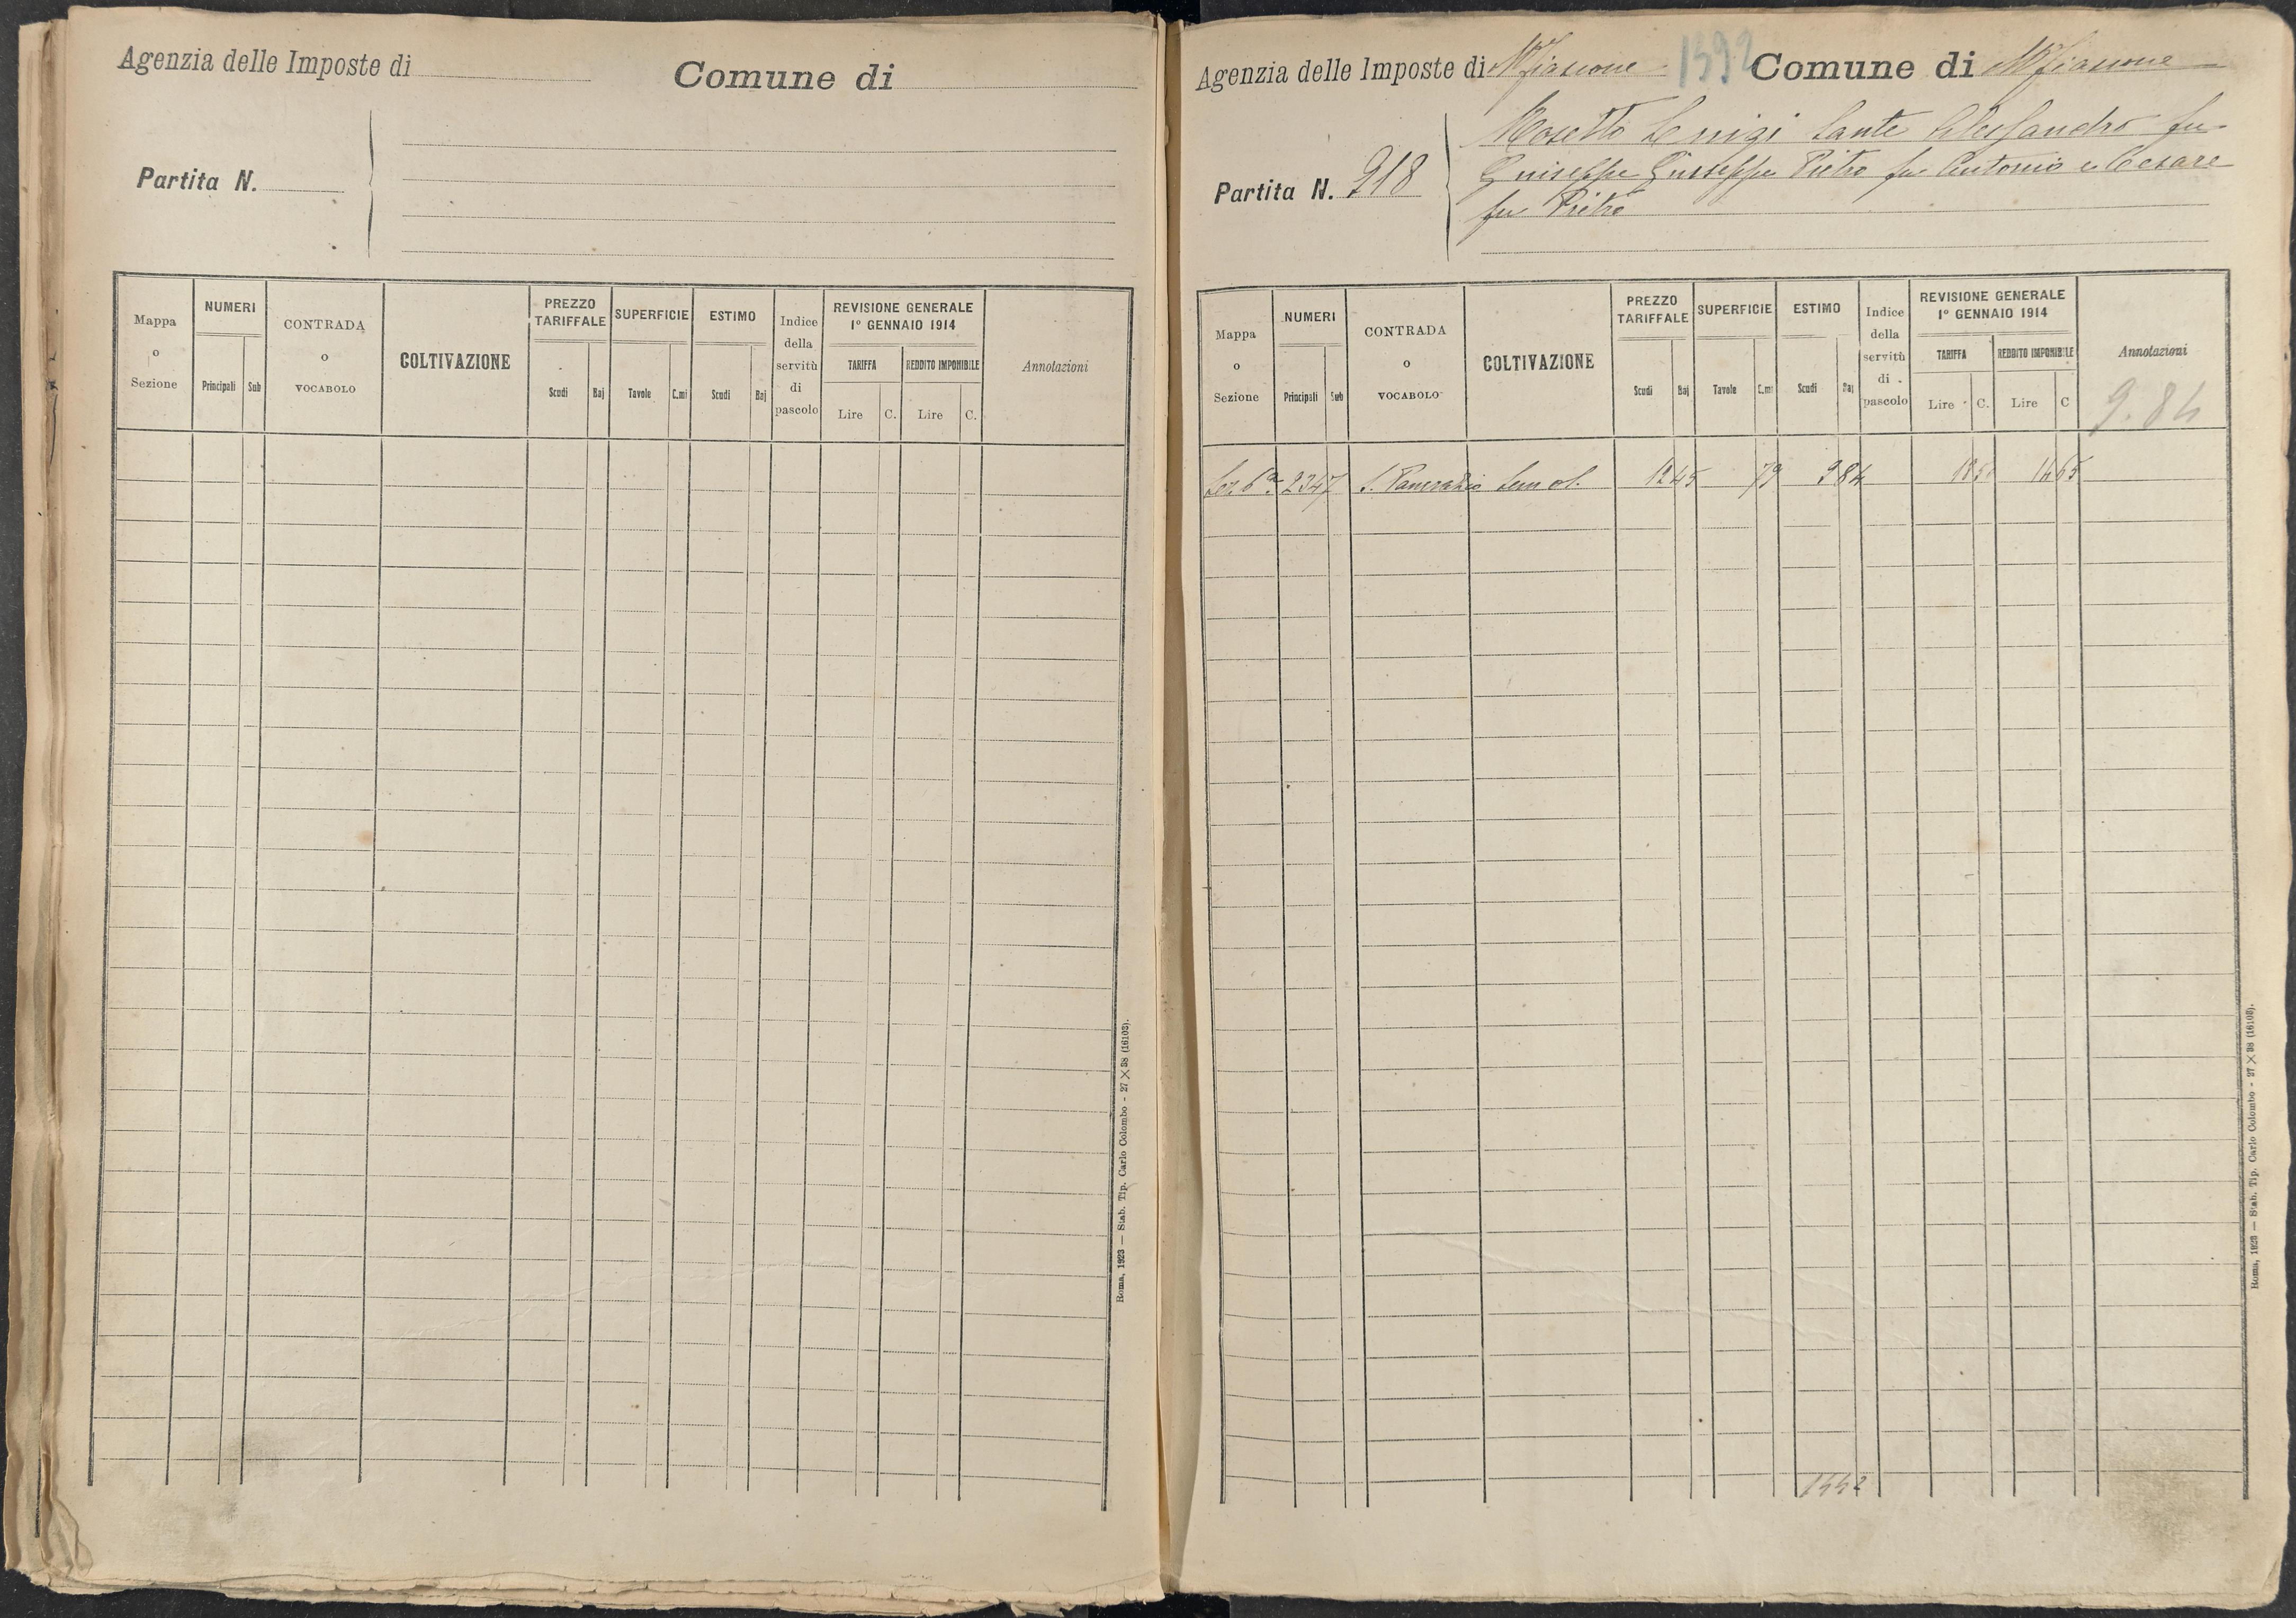 Agenzia delle Imposte di
Comune di
Partita N.
Mappa o Sezione
NUMERI
Principali
Sub
CONTRADA o VOCABOLO
COLTIVAZIONE
PREZZO TARIFFALE
Scudi
Baj
SUPERFICIE
Tavole
C.mi
ESTIMO
Scudi
Baj
Indice della servitù di pascolo
REVISIONE GENERALE
1° GENNAIO 1914
TARIFFA
Lire
C.
REDDITO IMPONIBILE
Lire
C.
Annotazioni
Roma, 1923 — Stab. Tip. Carlo Colombo - 27 × 38 (16103).
Agenzia delle Imposte di Mfiascone 1592 Comune di Mfiascone
Luigi Sante Alessandro fu
Partita N. 918
Giuseppe Giuseppe Pietro fu Antonio e Cesare
fu Pietro
Mappa o Sezione
NUMERI
Principali
Sub
CONTRADA o VOCABOLO
COLTIVAZIONE
PREZZO TARIFFALE
Scudi
Baj
SUPERFICIE
Tavole
C.mi
ESTIMO
Scudi
Baj
Indice della servitù di pascolo
REVISIONE GENERALE
1° GENNAIO 1914
TARIFFA
Lire
C.
REDDITO IMPONIBILE
Lire
C
Annotazioni
9.84
Sez. 6a 2347 S. Pancrazio Sem ol. 12 45 79 9 84 14 65
Roma, 1923 — Stab. Tip. Carlo Colombo - 27 × 38 (16103).